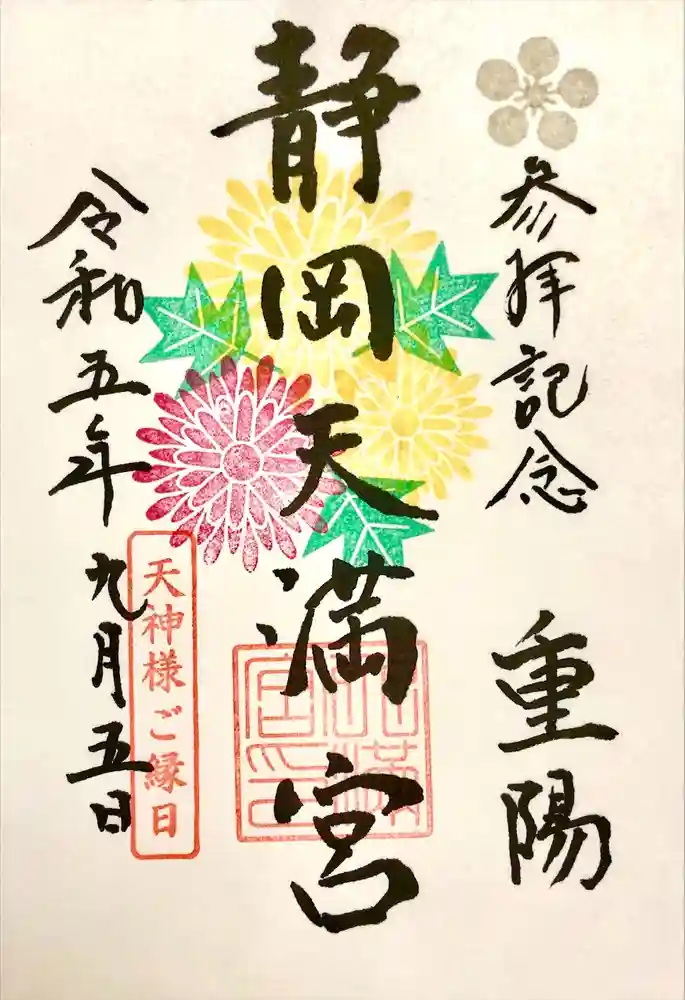 参拝記念
重陽
静岡天満宮
天神様ご縁日
令和五年九月五日